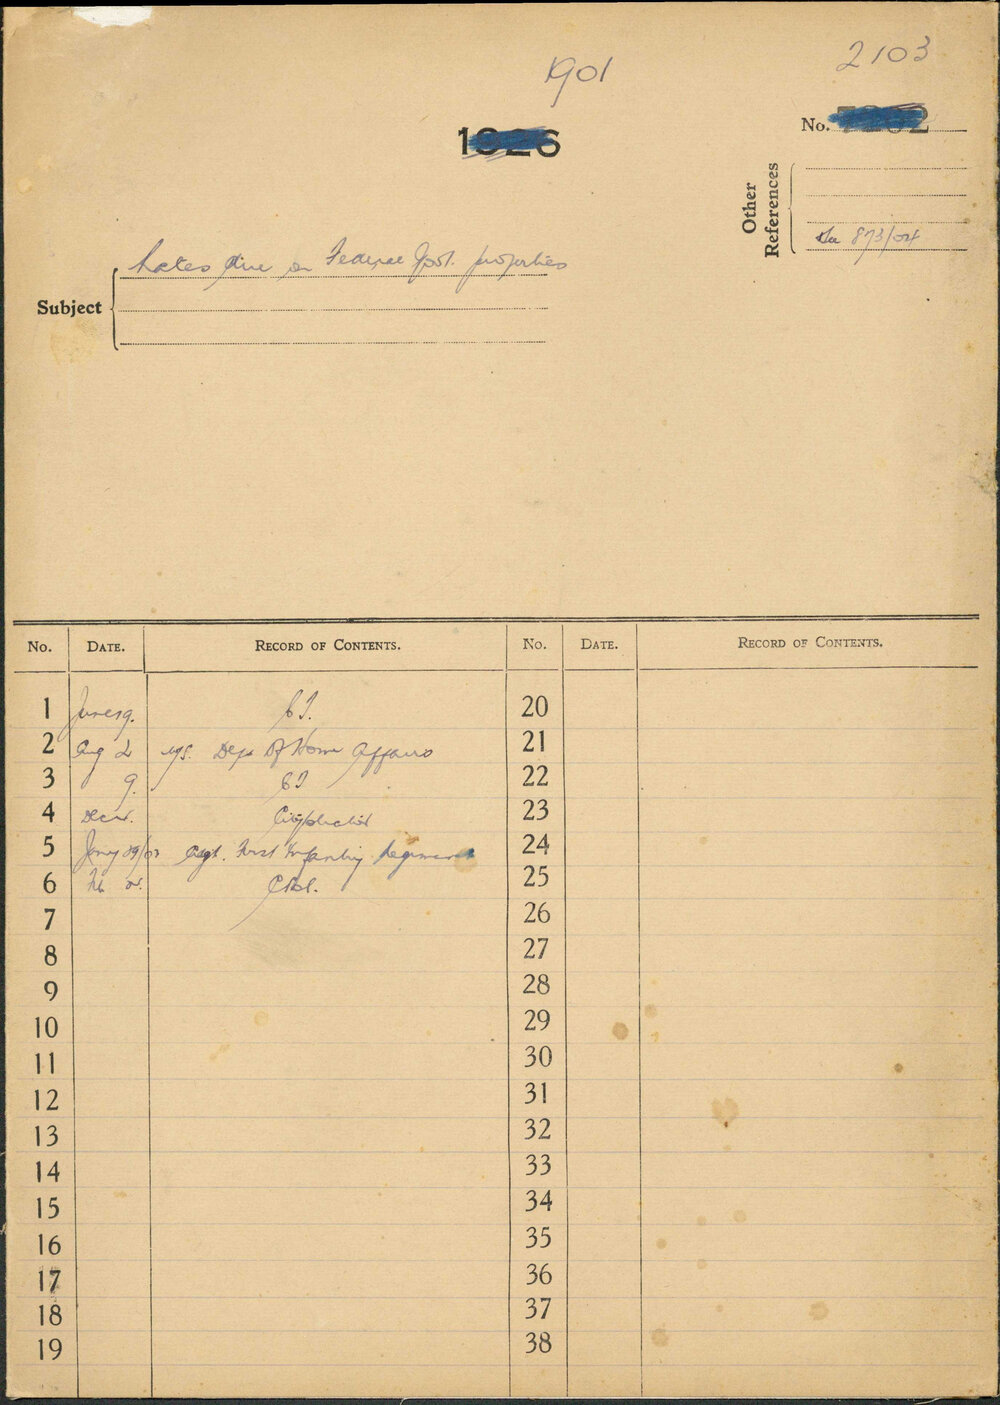 1901
2103
1926
No. 7202
Other References
See 873/04
Subject
Rates due on Federal Govt. properties
No. DATE. RECORD OF CONTENTS. No. DATE. RECORD OF CONTENTS.
1 June 19. 20
2 Aug 2 Dept of Home Affairs 21
3 9. 22
4 Decr. 23
5 Jany 29/03 First Infantry Regiment 24
6 25
7 26
8 27
9 28
10 29
11 30
12 31
13 32
14 33
15 34
16 35
17 36
18 37
19 38